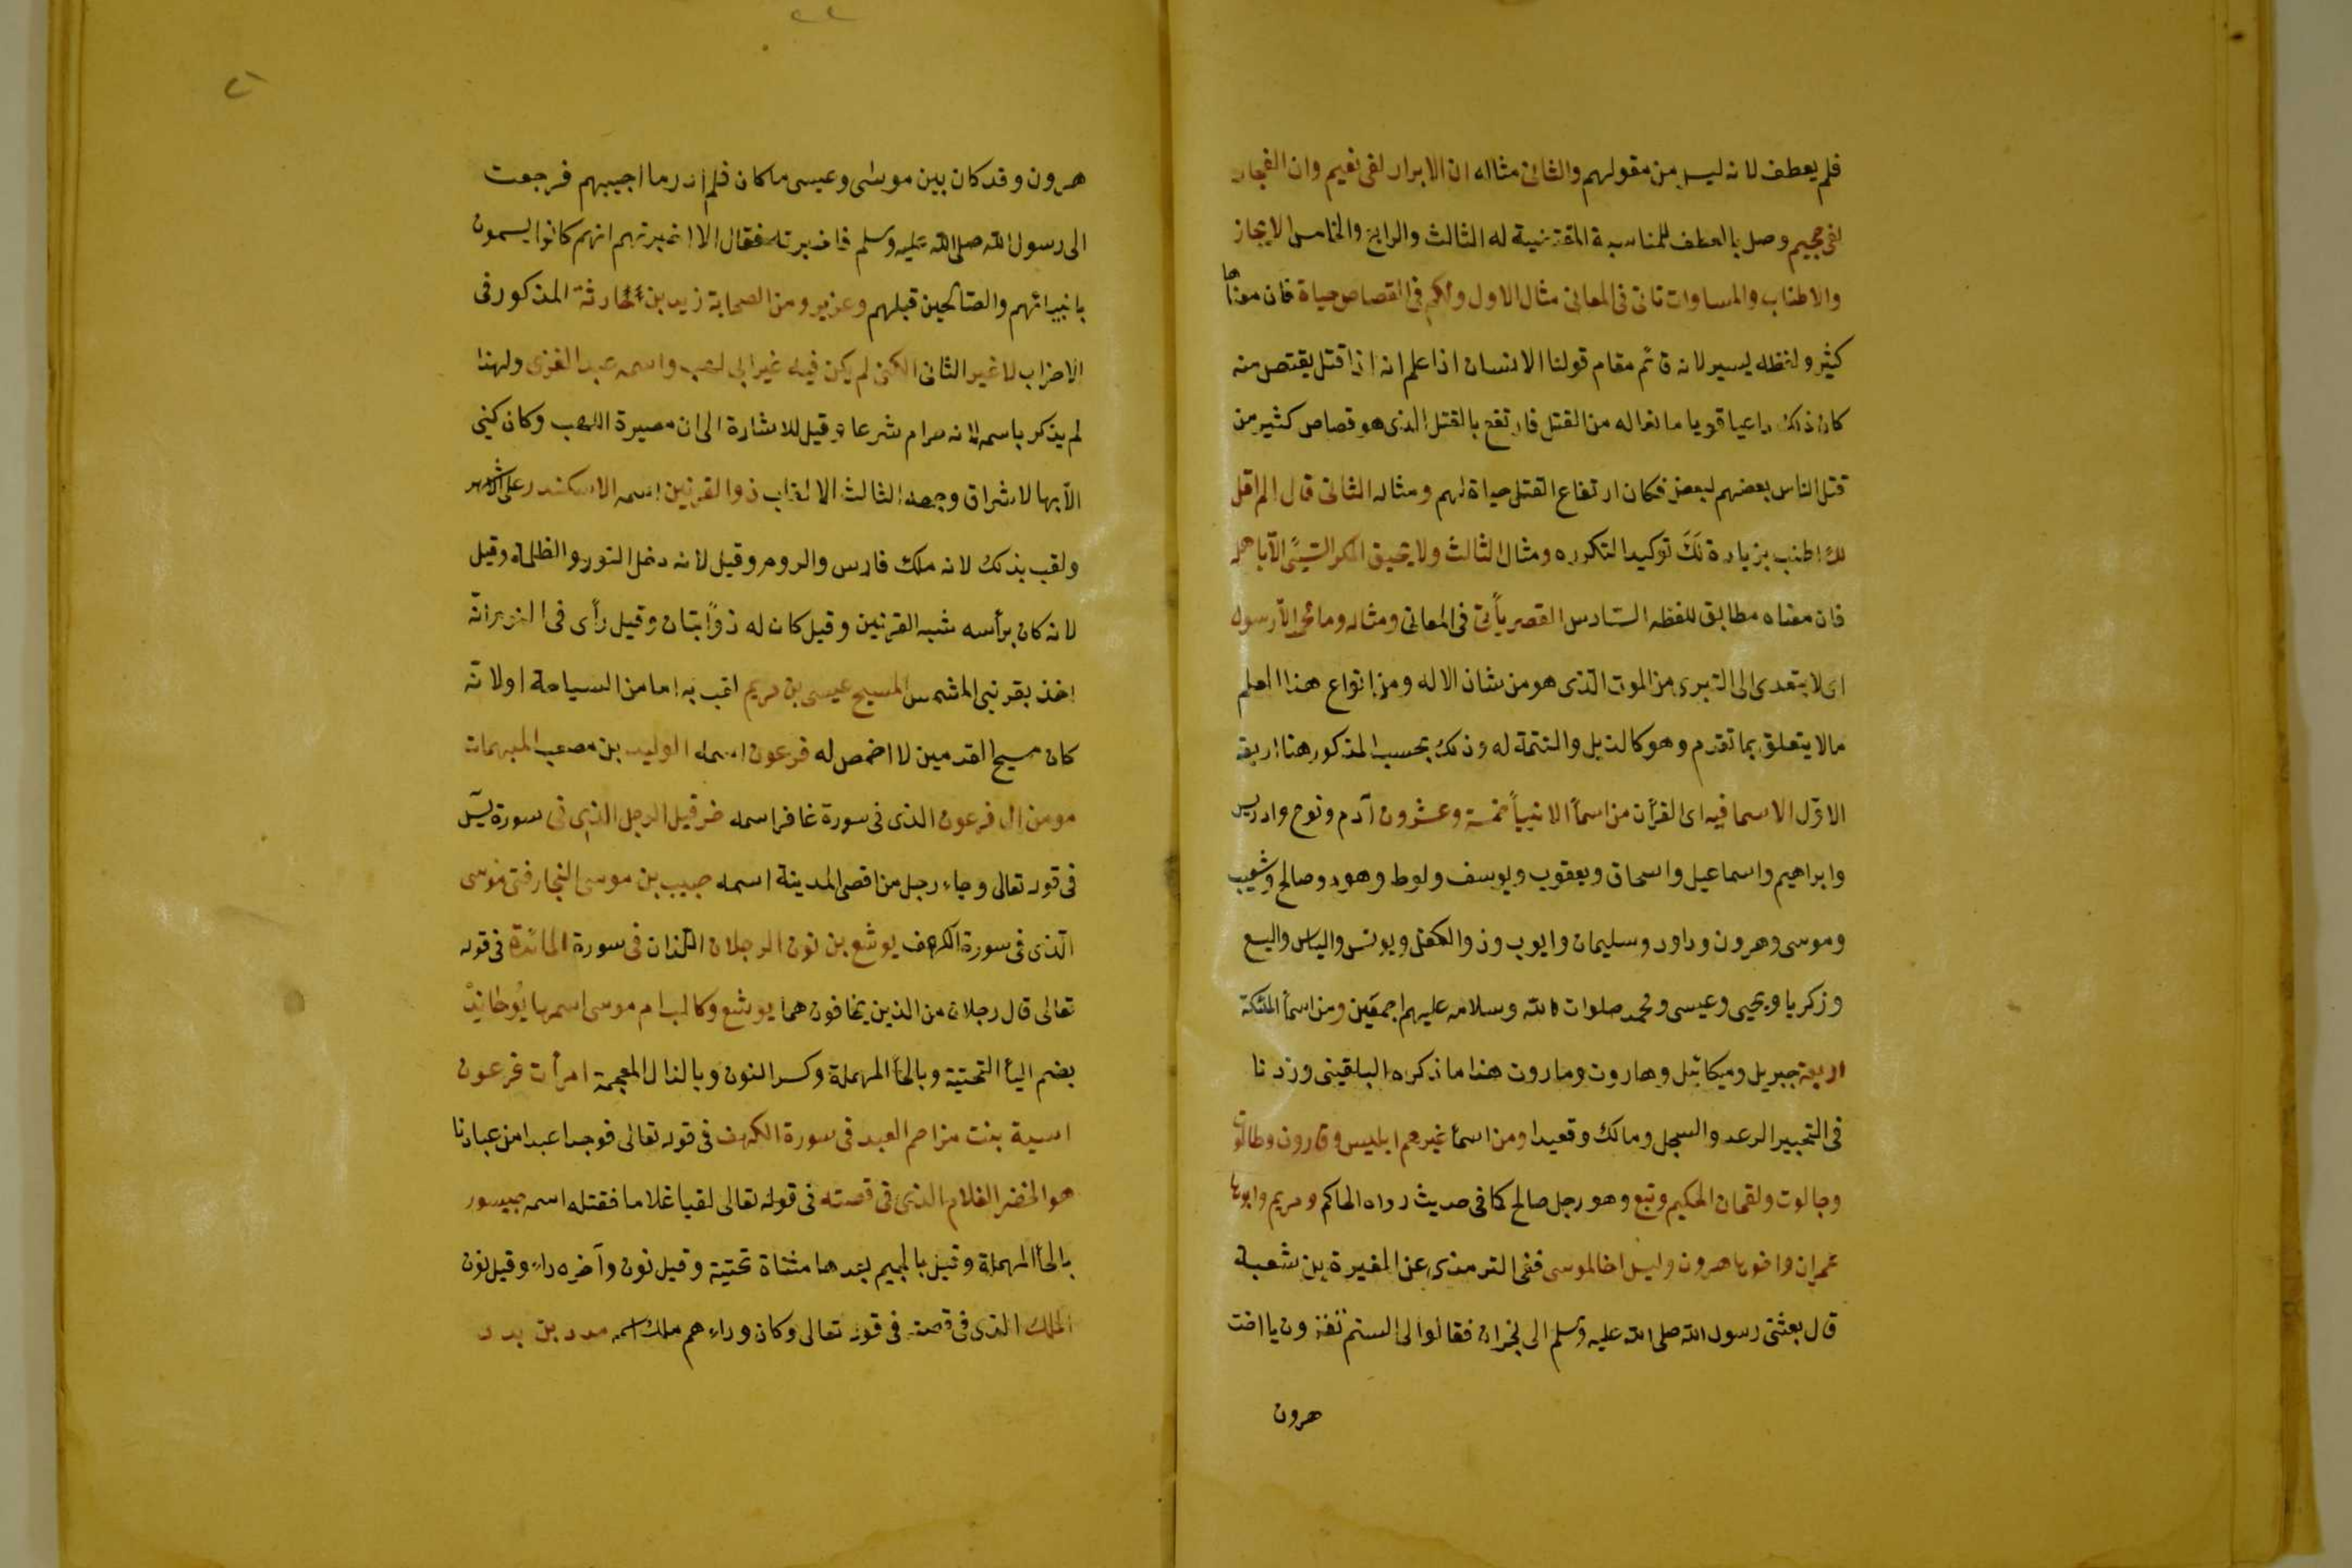 فلم يعطف لانه ليس من مقولهم والثانى مثاله ان الابرار لفى نعيم وان الفجار
لفى جحيم وصل بالعطف للمناسبة المقتضية له الثالث والرابع والخامس الايجاز
والاطناب والمساوات تاتى فى المعانى مثال الاول ولكم فى القصاص حياة فان معناها
كثير ولفظه يسير لانه قائم مقام قولنا الانسان اذا علم انه اذا قتل يقتص منه
كان ذلك داعيا قويا مانعا له من القتل فارتفع بالقتل الذى هو قصاص كثير من
قتل الناس بعضهم لبعض فكان ارتفاع القتل حياة لهم ومثاله الثانى قال الم اقل
لك اطنب بزيادة لك توكيدا لتكرره ومثال الثالث ولا يحيق المكر السيئ الا باهله
فان معناه مطابق للفظه السادس القصر يأتى فى المعانى ومثاله وما محمد الا رسول
اى لا يتعدى الى التبرى من الموت الذى هو من شان الاله ومن انواع هذا العلم
مالا يتعلق بما تقدم وهو كالذيل والتتمة له وذلك بحسب المذكور هنا اربعة
الاول الاسما فيه اى القرآن من اسمأ الانبيأ خمسة وعشرون آدم ونوح وادريس
وابراهيم واسماعيل واسحاق ويعقوب ويوسف ولوط وهود وصالح وشعيب
وموسى وهرون وداود وسليمان وايوب وذوالكفل ويونس والياس واليسع
وزكريا ويحيى وعيسى ومحمد صلوات الله وسلامه عليهم اجمعين ومن اسمأ الملئكة
اربعة جبريل وميكائيل وهاروت وماروت هذا ما ذكره البلقينى وزدنا
فى التحبير الرعد والسجل ومالك وقعيدا ومن اسمأ غيرهم ابليس وقارون وطالوت
وجالوت ولقمان الحكيم وتبع وهو رجل صالح كما فى حديث رواه الحاكم ومريم وابوها
عمران واخوها هرون وليس اخا لموسى ففى الترمذى عن المغيرة بن شعبة
قال بعثنى رسول الله صلى الله عليه وسلم الى نجران فقالوا لى الستم تقرؤن يا اخت
هرون
هرون وقد كان بين موسى وعيسى ما كان فلم ادر ما اجيبهم فرجعت
الى رسول الله صلى الله عليه وسلم فاخبرته فقال الا اخبرتهم انهم كانوا يسمون
بانبيائهم والصالحين قبلهم وعزير ومن الصحابة زيد بن الحارثة المذكور فى
الاحزاب لا غير الثانى الكنى لم يكن فيه غير ابى لهب واسمه عبد العزى ولهذا
لم يذكر باسمه لانه حرام شرعا وقيل للاشارة الى ان مصيره اللهب وكان كنى
الا بها لاشراق وجهه الثالث الالقاب ذوالقرنين اسمه الاسكندر على الاشهر
ولقب بذلك لانه ملك فارس والروم وقيل لانه دخل النور والظلمة وقيل
لانه كان برأسه شبه القرنين وقيل كان له ذؤابتان وقيل رأى فى النوم انه
اخذ بقرنى الشمس المسيح عيسى بن مريم لقب به اما من السياحة اولانه
كان مسيح القدمين لا اخمص له فرعون اسمه الوليد بن مصعب المبهمات
مومن ال فرعون الذى فى سورة غافر اسمه خرقيل الرجل الذى فى سورة يس
فى قوله تعالى وجاء رجل من اقصى المدينة اسمه حبيب بن موسى النجار فتى موسى
الذى فى سورة الكهف يوشع بن نون الرجلان اللذان فى سورة المائدة فى قوله
تعالى قال رجلان من الذين يخافون هما يوشع وكالب ام موسى اسمها يوحانذ
بضم اليأ التحتية وبالحأ المهملة وكسر النون وبالذال المعجمة امرأت فرعون
اسية بنت مزاحم العبد فى سورة الكهف فى قوله تعالى فوجدا عبدا من عبادنا
هو الخضر الغلام الذى فى قصته فى قوله تعالى لقيا غلاما فقتله اسمه حيسور
بالحأ المهملة وقيل بالجيم بعدها مثناة تحتية وقيل نون وآخره راء وقيل نون
الملك الذى فى قصته فى قوله تعالى وكان وراءهم ملك اسمه مدد بن بدد